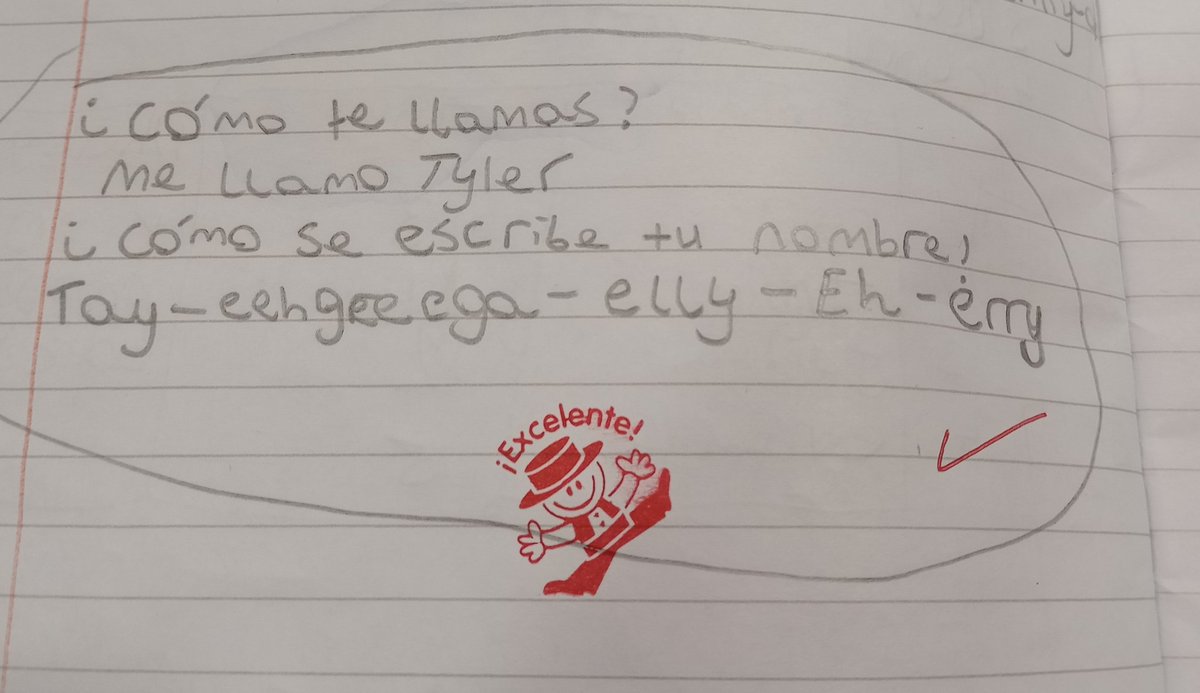 ¿cómo te llamas?
me llamo Tyler
¿cómo se escribe tu nombre,
Tay-eehgreeega-elly-Eh-érry
¡Excelente!